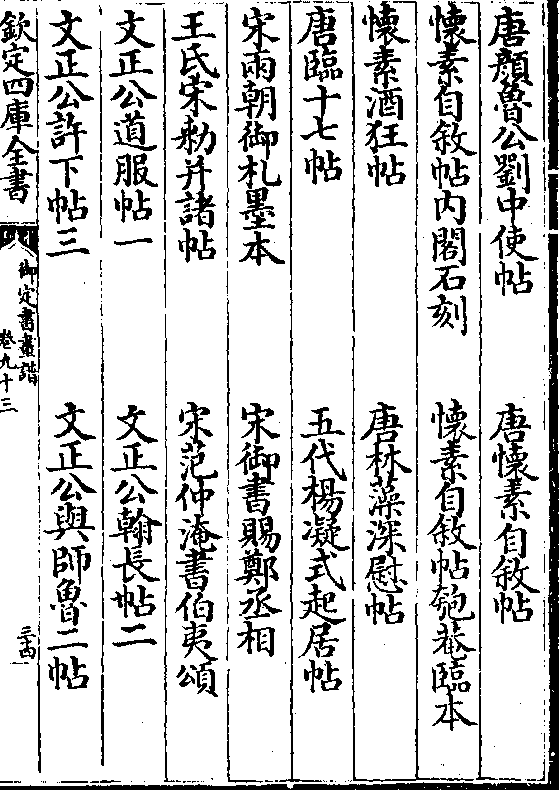 唐顔魯公劉中使帖　唐懷素自敘帖
懷素自敘帖内閣石刻　懷素自敘帖匏菴臨本
懷素酒狂帖　唐林藻深慰帖
唐臨十七帖　五代楊凝式起居帖
宋兩朝御札墨本　宋御書賜鄭丞相
王氏宋勅并諸帖　宋范仲淹書伯夷頌
文正公道服帖一　文正公翰長帖二
文正公許下帖三　文正公與師魯二帖
欽定四庫全書　御定書畫譜　卷九十三　三十四